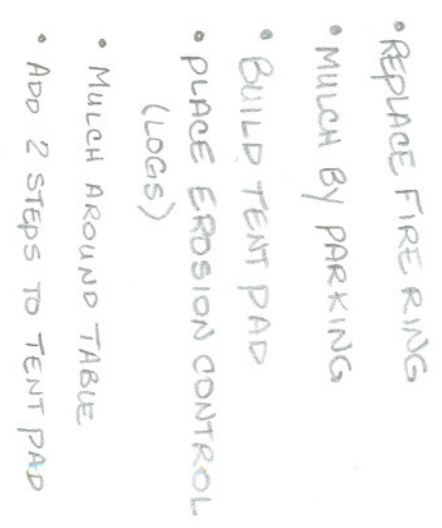 • REPLACE FIRE RING
• MULCH BY PARKING
• BUILD TENT PAD
• PLACE EROSION CONTROL
(LOGS)
• MULCH AROUND TABLE
• ADD 2 STEPS TO TENT PAD